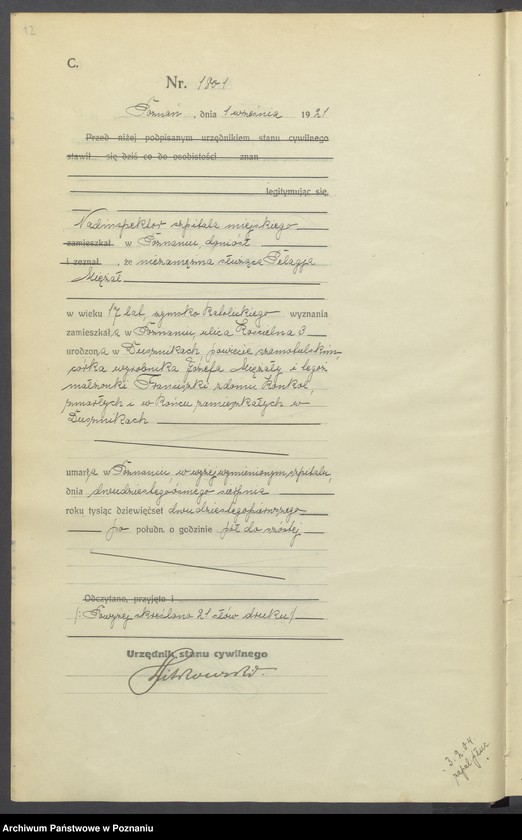 12
C.
Nr. 1801
Poznań, dnia 1 września 1921
Przed niżej podpisanym urzędnikiem stanu cywilnego
stawił się dziś co do osobistości znan
legitymując się,
Nadinspektor szpitala miejskiego
zamieszkał w Poznaniu, doniósł
i zeznał, że niezamężna służąca Pelagja
Mięzał
w wieku 17 lat, rzymsko katolickiego wyznania
zamieszkała w Poznaniu, ulica Kościelna 3
urodzona w Dusznikach, powiecie szamotulskim,
córka wyrobnika Józefa Mięzały i tegoż
małżonki Franciszki z domu Konkol,
zmarłych i w końcu zamieszkałych w
Dusznikach
umarła w Poznaniu, w wyżej wymienionym szpitalu,
dnia dwudziestegoósmego sierpnia
roku tysiąc dziewięćset dwudziestegopierwszego
po połudn. o godzinie pół do szóstej
Odczytano, przyjęto i
/: Powyżej skreślono 21 słów druku/
Urzędnik stanu cywilnego
3.2.04
zapal. płuc
Archiwum Państwowe w Poznaniu